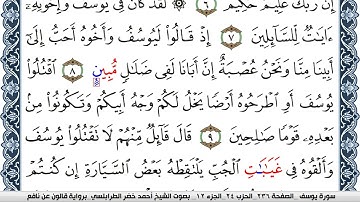 إِنَّ رَبَّكَ عَلِيمٌ حَكِيمٌ ٦ لَّقَدْ كَانَ فِي يُوسُفَ وَإِخْوَتِهِۦ
ءَايَٰتٌ لِّلسَّآئِلِينَ ٧ إِذْ قَالُواْ لَيُوسُفُ وَأَخُوهُ أَحَبُّ إِلَىٰ
أَبِينَا مِنَّا وَنَحْنُ عُصْبَةٌ إِنَّ أَبَانَا لَفِى ضَلَٰلٍ مُّبِينٍ ٨ اُقْتُلُواْ
يُوسُفَ أَوِ اِطْرَحُوهُ أَرْضًا يَخْلُ لَكُمْ وَجْهُ أَبِيكُمْ وَتَكُونُواْ مِنۢ
بَعْدِهِۦ قَوْمًا صَٰلِحِينَ ٩ قَالَ قَآئِلٌ مِّنْهُمْ لَا تَقْتُلُواْ يُوسُفَ
وَأَلْقُوهُ فِى غَيَٰبَٰتِ اِلْجُبِّ يَلْتَقِطْهُ بَعْضُ اُلسَّيَّارَةِ إِن كُنتُمْ
سورة يوسف _الصفحة ٢٣٦_ الحزب ٢٤_ الجزء ١٢ _ بصوت الشيخ أحمد خضر الطرابلسي_ برواية قالون عن نافع